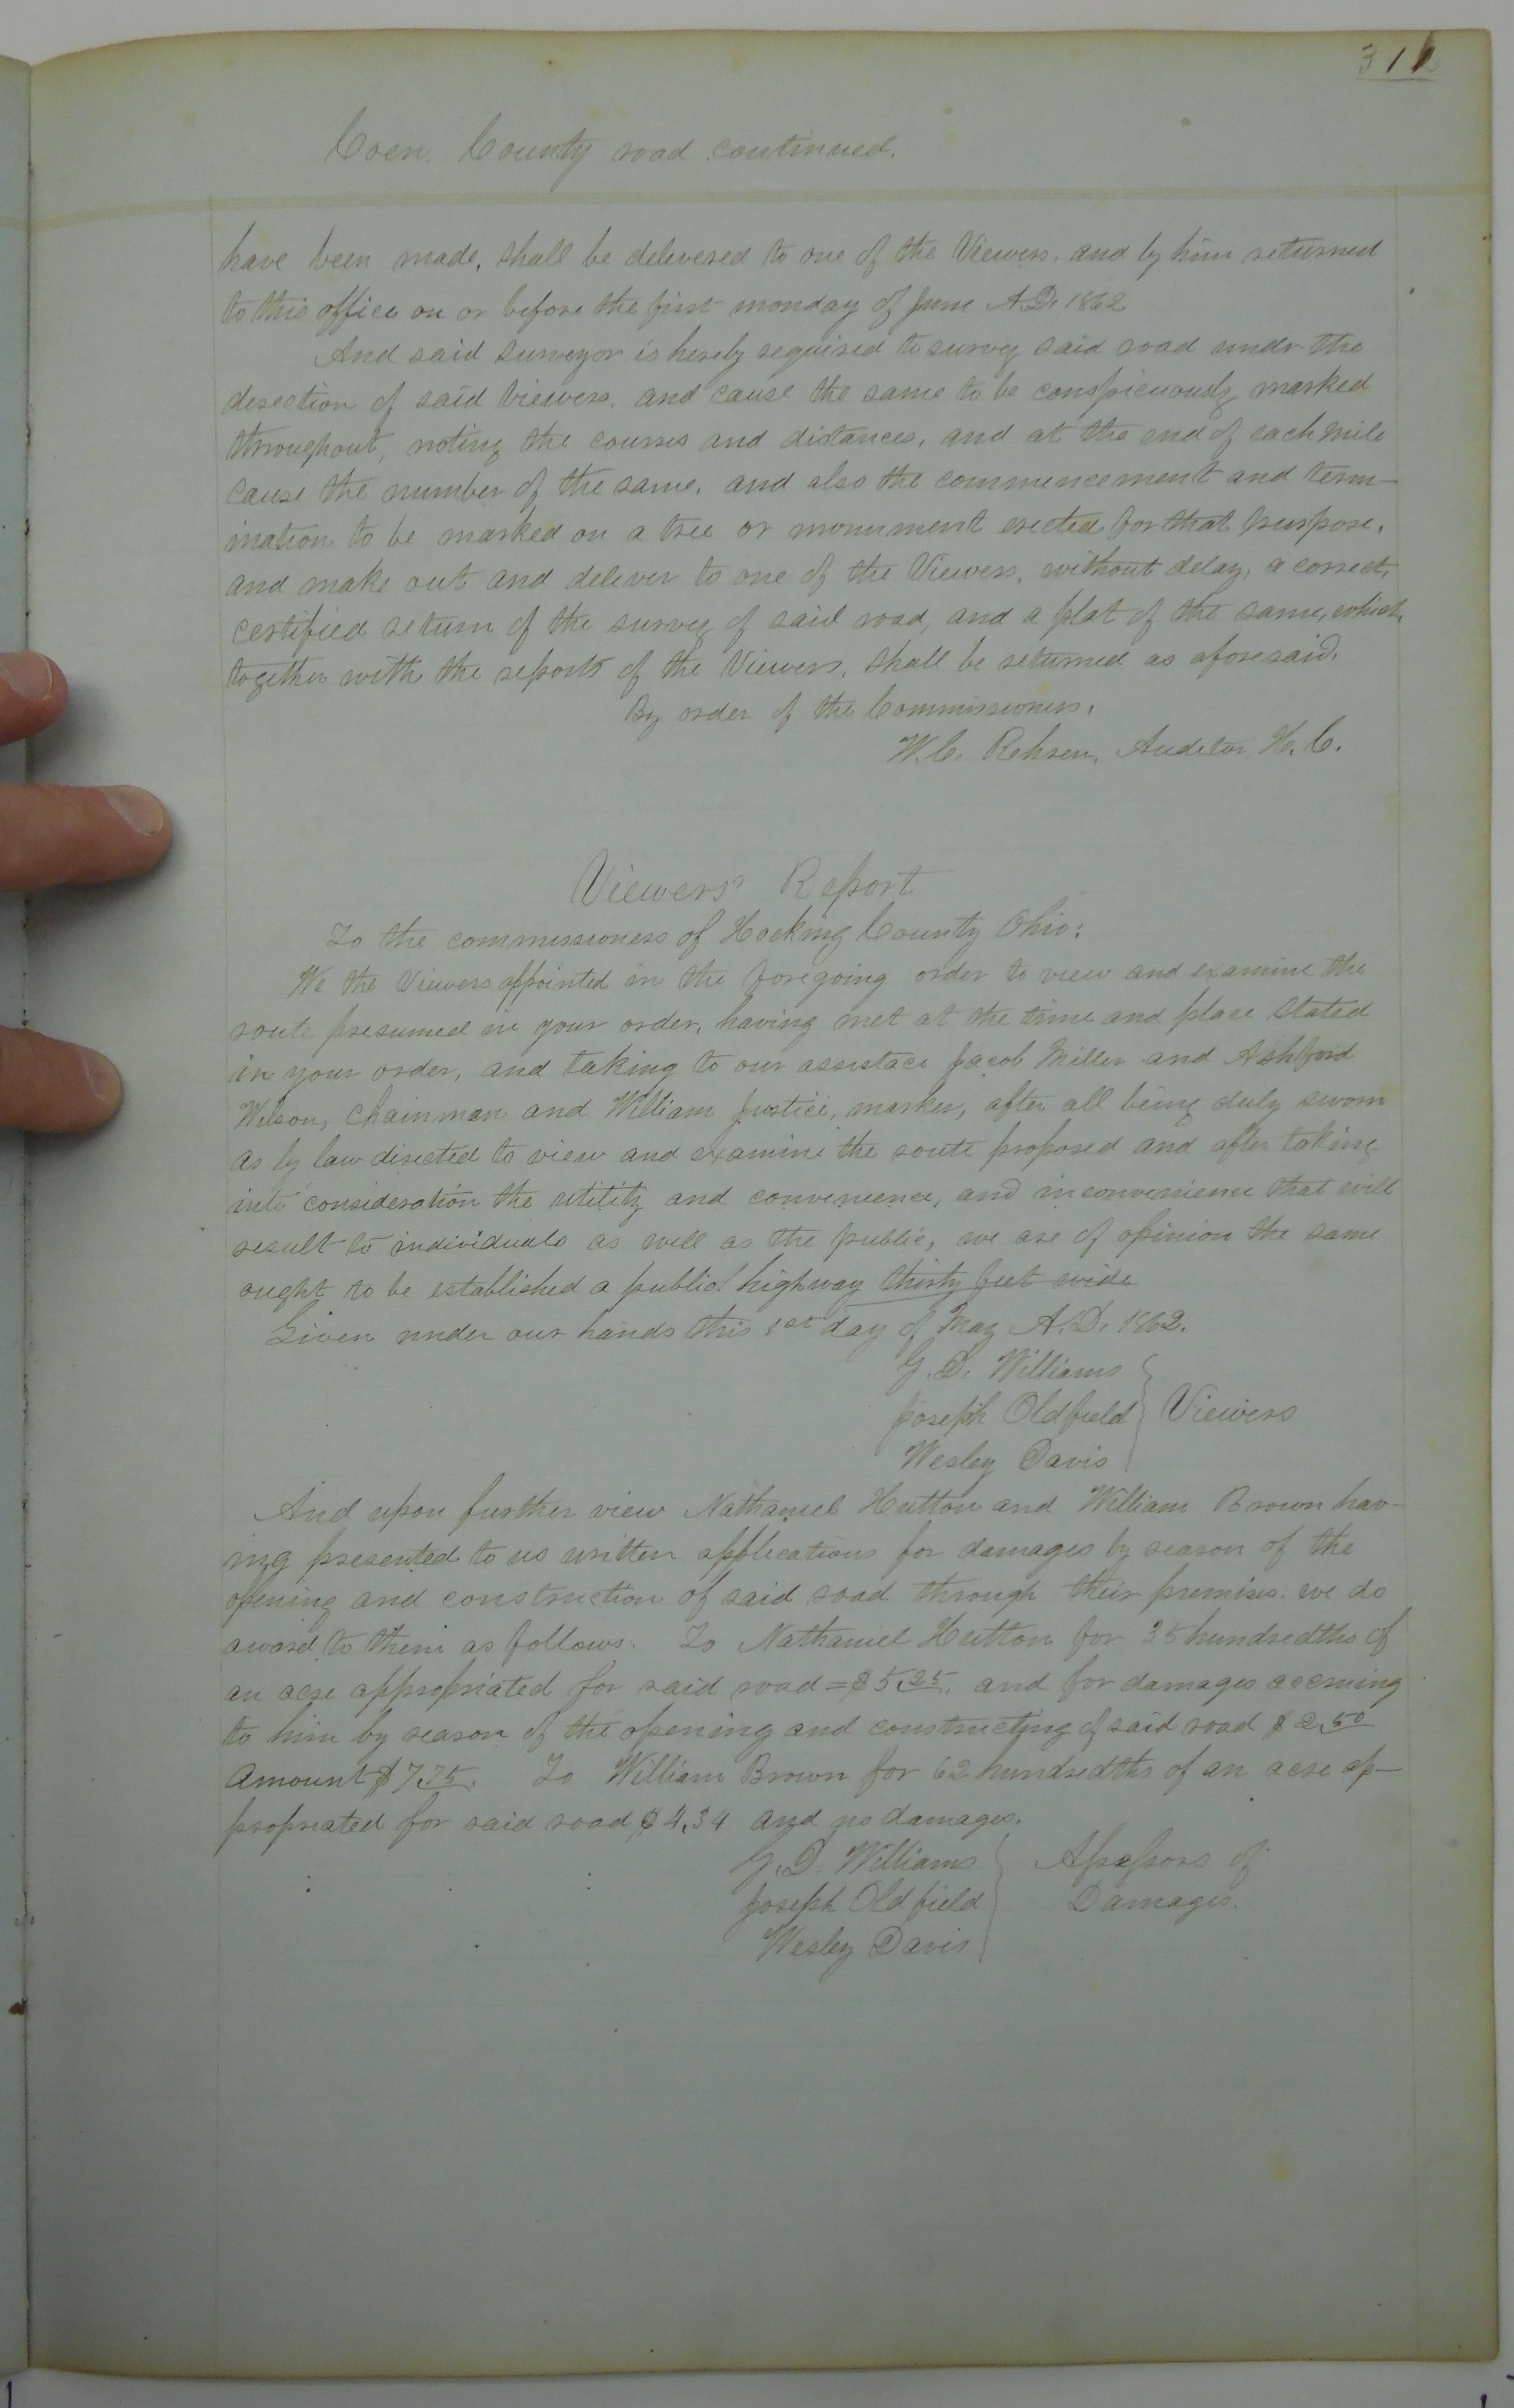 311
Coen County road continued.
have been made, shall be delivered to one of the Viewers, and by him returned
to this office on or before the first monday of June A.D. 1862
And said Surveyor is hereby required to survey said road undr the
desection of said Viewers, and cause the same to be conspicuously marked
throughout, noting the courses and distances, and at the end of each mile
cause the number of the same, and also the commencement and term-
ination to be marked on a tree or monument erected for that purpose,
and make out and deliver to one of the Viewers, without delay, a correct,
certified return of the survey of said road, and a plat of the same, which,
together with the reports of the Viewers, shall be returned as aforesaid.
By order of the Commissioners,
W. C. Auditor, H. C.
Viewers' Report
To the commissioners of Hocking County Ohio:
We the Viewers appointed in the foregoing order to view and examine the
route presumed in your order, having met at the time and place stated
in your order, and taking to our assistace Jacob Miller and Ashford
Wilson, Chainman and William Justice, marker, after all being duly sworn
as by law directed to view and examine the route proposed and after taking
into consideration the utility and convenience, and inconvenience that will
result to individuals as well as the public, we are of opinion the same
ought to be established a public highway thirty feet wide
Given under our hands this 1st day of May A.D. 1862.
G. D. Williams
Joseph Oldfield Viewers
Wesley Davis
And upon further view Nathaniel Hutton and William Brown hav-
ing presented to us written applications for damages by reason of the
opening and construction of said road through their premises. we do
award to them as follows: To Nathaniel Hutton for 35 hundredths of
an acre appropriated for said road = $5.25. and for damages accruing
to him by reason of the opening and constructing of said road $2.50
Amount $7.75. To William Brown for 62 hundredths of an acre ap-
propriated for said road $4.34 and no damages.
G. D. Williams Assessors of
Joseph Oldfield Damages.
Wesley Davis